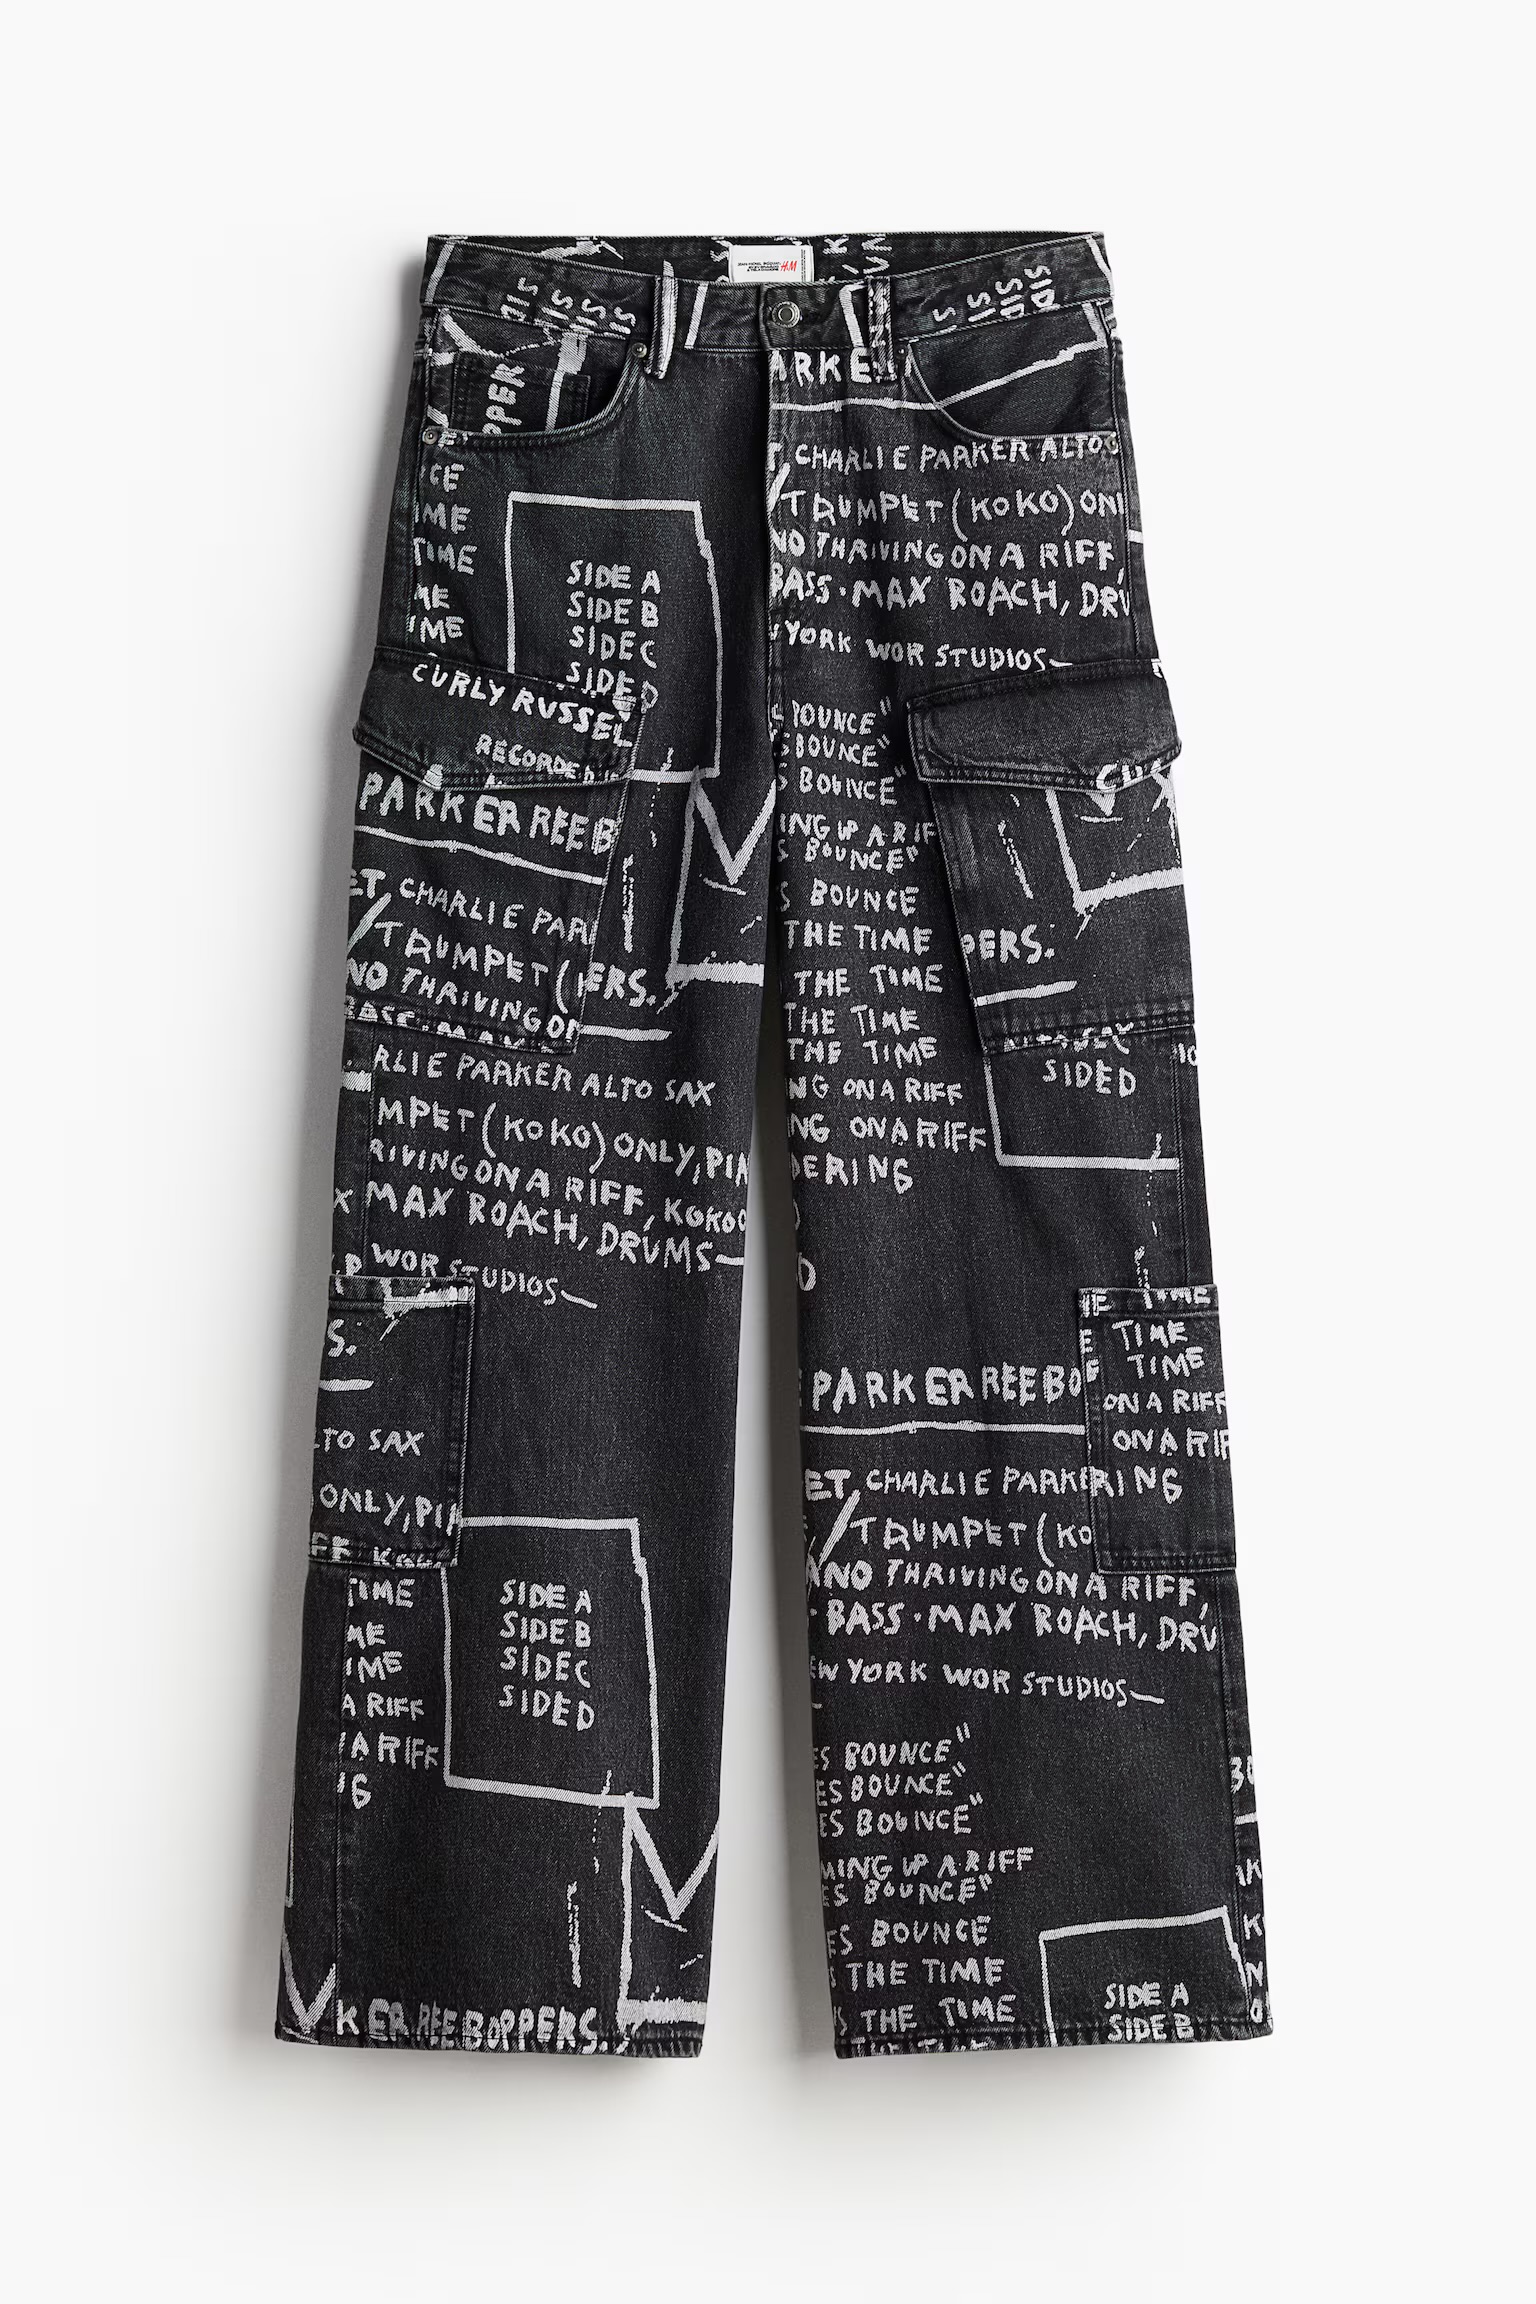 H&M
SIDE A
SIDE B
SIDE C
SIDE D
CURLY RUSSEL
RECORDED
PARKER REEB
ET, CHARLIE PAR
/TRUMPET (
NO THRIVING ON
ERS.
RLIE PARKER ALTO SAX
MPET (KOKO) ONLY, PIA
RIVING ON A RIFF, KOKO
MAX ROACH, DRUMS—
WOR STUDIOS—
S.
LTO SAX
ONLY, PI
TIME
ME
IME
A RIFF
A RIFF
G
SIDE A
SIDE B
SIDE C
SIDE D
KER REEBOPPERS.
ARKE
T, CHARLIE PARKER ALTO
/TRUMPET (KOKO) ON
NO THRIVING ON A RIFF,
BASS • MAX ROACH, DRU
YORK WOR STUDIOS—
BOUNCE"
S BOUNCE"
S BOUNCE"
ING UP A RIF
S BOUNCE"
S BOUNCE
THE TIME
THE TIME
THE TIME
THE TIME
NG ON A RIFF
NG ON A RIFF
DERING
PERS.
SIDE D
TIME
TIME
ON A RIFF
ON A RIF
RING
PARKER REEBO
ET, CHARLIE PARKE
/TRUMPET (KO
NO THRIVING ON A RIFF,
BASS • MAX ROACH, DRU
EW YORK WOR STUDIOS—
ES BOUNCE"
ES BOUNCE"
ES BOUNCE"
MING UP A RIFF
ES BOUNCE"
ES BOUNCE
THE TIME
S THE TIME
SIDE A
SIDE B